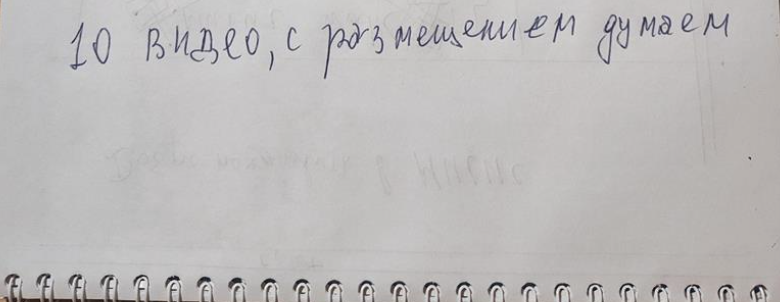 10 видео, с размещением думаем